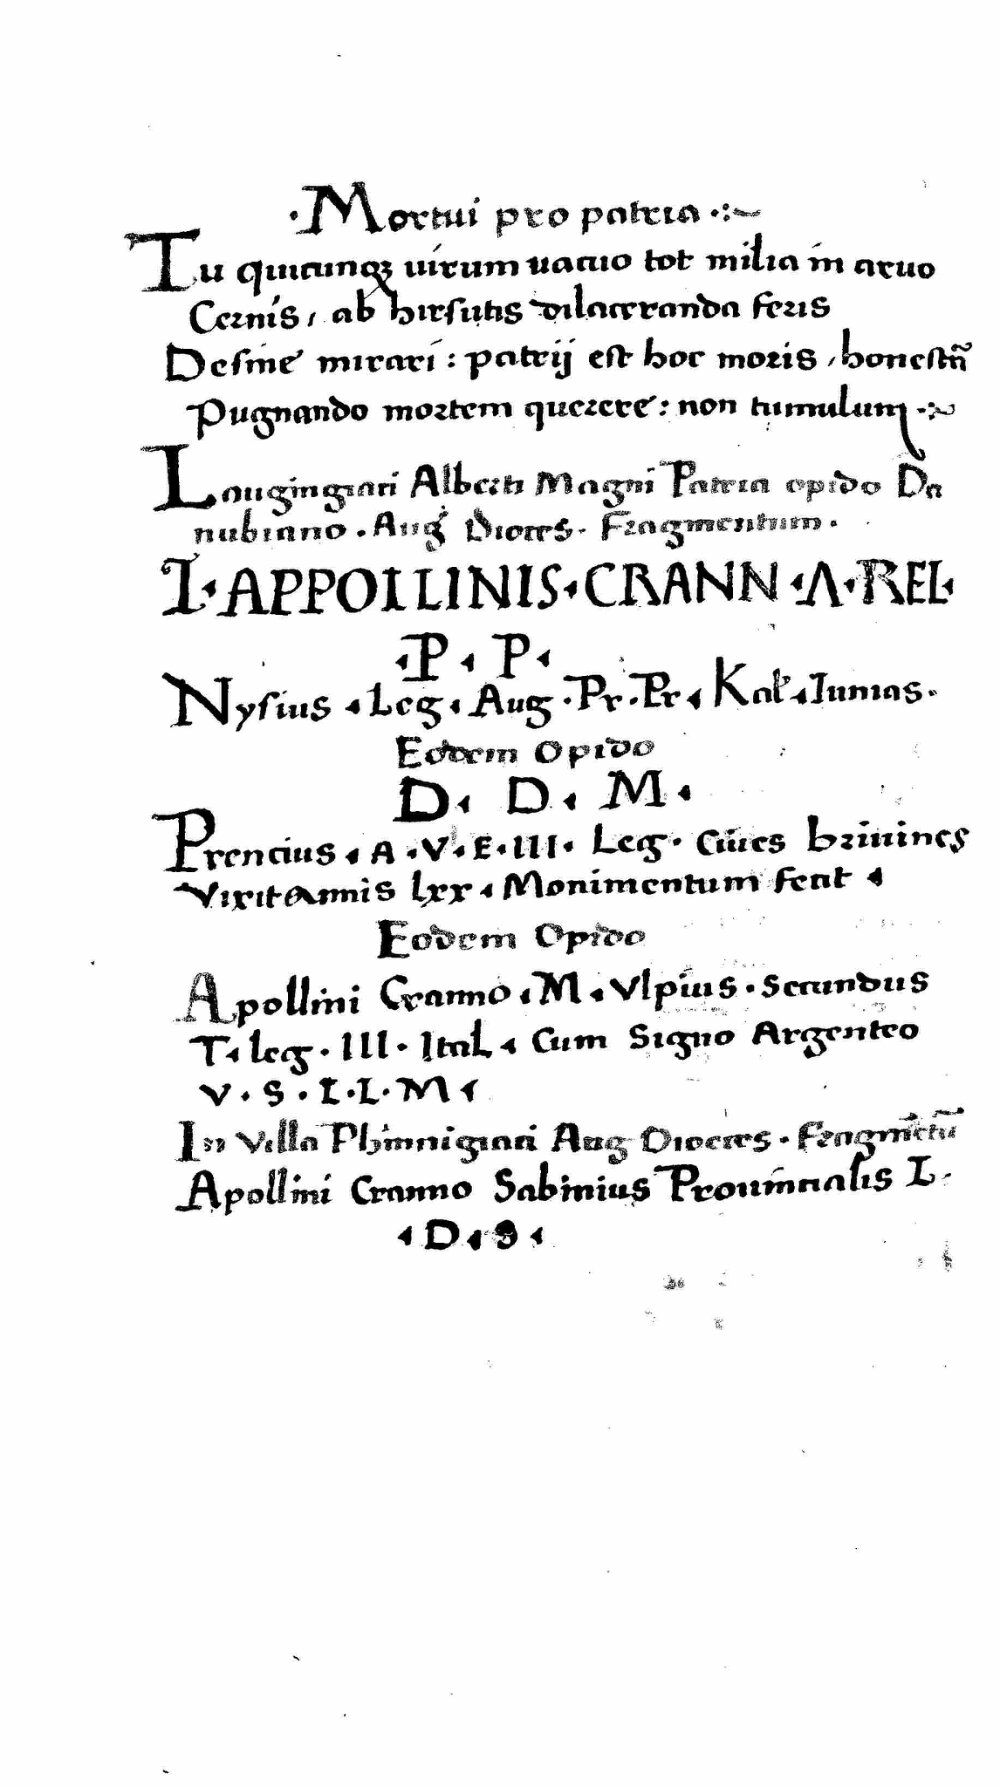 ·Mortui pro patria·:~
Tu quicunqꝫ uirum uacuo tot milia in aruo
Cernis, ab hirsutis dilaceranda feris
Desine mirari: patrij est hoc moris, honestũ
Pugnando mortem querere: non tumulum·:~
Laugingiari Alberti Magni Patria opido Da
nubiano. Aug Dioces. Fragmentum.
I·APPOLLINIS·CRANN·A·REL·
·P·P·
Nysius·Leg·Aug·Pr·Pr·Kal·Iunias·
Eodem Opido
D· D· M·
Prencius·A·V·E·III·Leg·Ciues Briuines
Vixit Annis lxx·Monimentum fecit·
Eodem Opido
Apollini Cranno·M·Vlpius·Secundus
T·leg·III·Ital·Cum Signo Argenteo
V·S·L·L·M·
In Villa Phinnigiari Aug Dioces·Fragmẽtũ
Apollini Cranno Sabinius Prouincialis L·
·D·S·